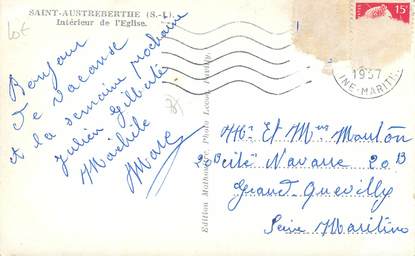 SAINT-AUSTREBERTHE (S.-I.)
Intérieur de l'Eglise.
Lot
15F
1957
INE-MARITI
Bonjour
de vacance
et la semaine prochaine
Julien Gilberte
Michèle
Marc
Edition Photo Lecou
Mr Et Mme Mauton
20 Cité Navarre 20B
Grand-Quevilly
Seine Maritime